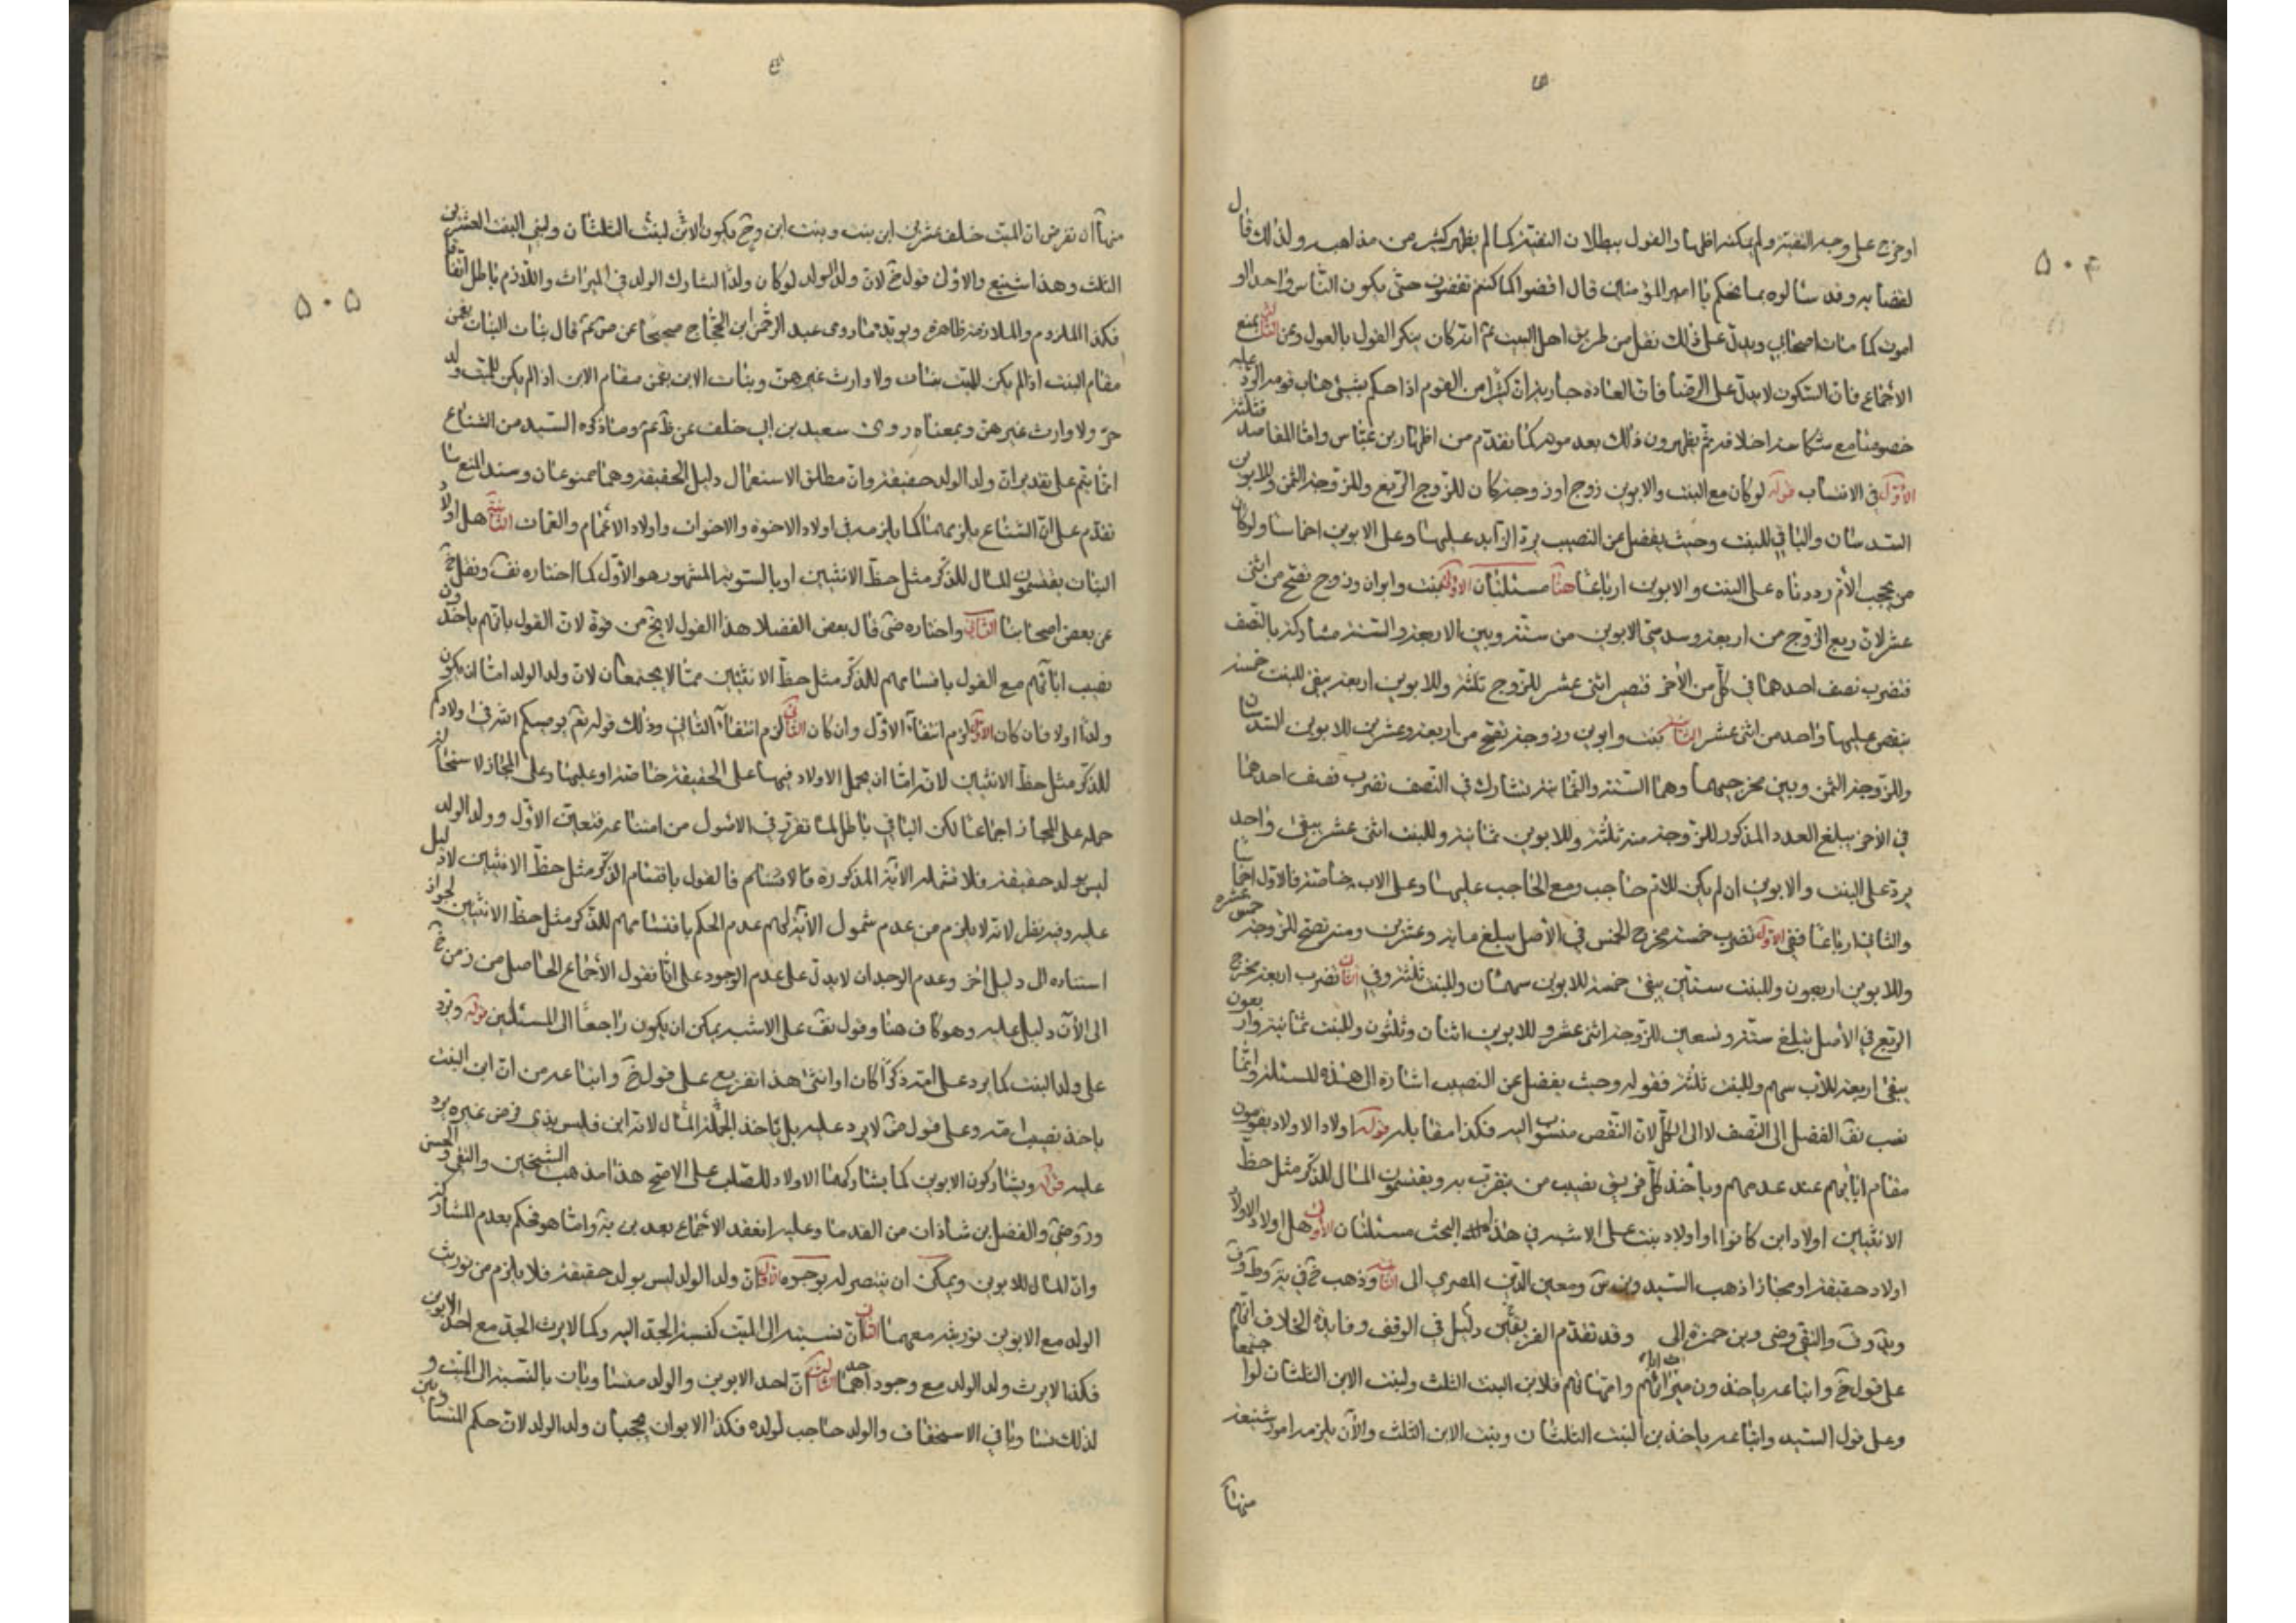 ۵۰۴
او خرج على وجه التقية ولم يمكنه اظهار القول ببطلان التقية كما لم يظهر كثير من مذاهبه ولذلك قال
لقضاته وقد سالوه بما نحكم يا امير المؤمنين قال اقضوا كما كنتم تقضون حتى يكون الناس واحدا او
اموت كما مات اصحابي ويدل على ذلك نقل من طريق اهل البيت عم انه كان ينكر القول بالعول وعن الثالث بمنع
الاجماع فان السكوت لا يدل على الرضا فان العادة جارية ان كثيرا من القوم اذا حكم بشئ هناب قومه الرد عليه
خصوصا مع شكا عنه اخلاقه ثم يظهرون ذلك بعد موته كما تقدم من اظهار بن عباس واما المقاصد فثلثة
الاول في الانساب قوله لو كان مع البنت والابوين زوج او زوجة كان للزوج الربع وللزوجة الثمن وللابوين
السدسان والباقي للبنت وحيث يفضل عن النصيب يرد الزايد عليها وعلى الابوين اخماسا ولو كان
من يحجب الام رددناه على البنت والابوين ارباعا هنا مسئلتان الاولى بنت وابوان وزوج تصح من اثنى
عشر لان ربع الزوج من اربعة وسدسى الابوين من ستة وبين الاربعة والستة مشاركة بالنصف
فتضرب نصف احدهما في كل من الاخر فتصير اثنى عشر للزوج ثلثة وللابوين اربعة يبقى للبنت خمسة
ينقص عليها واحد من اثنى عشر الثانية بنت وابوين وزوجة تصح من اربعة وعشرين للابوين السدسان
وللزوجة الثمن وبين مخرجيهما وهما الستة والثمانية تشارك في النصف تضرب نصف احدهما
في الاخر يبلغ العدد المذكور للزوجة منه ثلثة وللابوين ثمانية وللبنت اثنى عشر يبقى واحد
يرد على البنت والابوين ان لم يكن للام حاجب ومع الحاجب عليها وعلى الاب خاصة فالاول اخماسا
والثاني ارباعا ففي الاول تضرب خمسة مخرج الخمس في الاصل يبلغ ماية وعشرين ومنه تصح للزوجة خمس عشره
وللابوين اربعون وللبنت ستين يبقى خمسة للابوين سهمان وللبنت ثلثة وفي الثاني تضرب اربعة مخرج
الربع في الاصل يبلغ ستة وتسعين للزوجة اثنى عشر وللابوين اثنان وثلثون وللبنت ثمانية واربعون
يبقى اربعة للاب سهم وللبنت ثلثة فقوله وحيث يفضل عن النصيب اشارة الى هذه المسئلة وانما
نسب نقف الفضل الى النصف لا الى الكل لان النقص منسوب اليه فكذا مقابله قوله اولاد الاولاد يقومون
مقام ابائهم عند عدمهم وياخذ كل فريق نصيب من يتقرب به ويقتسمون المال للذكر مثل حظ
الانثيين اولاد ابن كانوا او اولاد بنت على الاشبه في هذا البحث مسئلتان الاولى هل اولاد الاولاد
اولاد حقيقة او مجازا ذهب السيد وبن س ومعين الدين المصري الى الثانية وذهب خ في ية وط وف
وبد وف والتقي وضى وبن حمزة الى وقد تقدم الفريقين دليل في الوقف وفايدة الخلاف انهم
على قول خ واتباعه ياخذون ميراث ابائهم وامهاتهم فلابن البنت الثلث ولبنت الابن الثلثان لو اجتمعا
وعلى قول السيد واتباعه ياخذ بن البنت الثلثان وبنت الابن الثلث والان يلزمه امور شنيعة
منها
۵۰۵
منها ان نفرض ان الميت خلف عشرين ابن بنت وبنت ابن وح يكون الابن لبنت الثلثان ولبني البنت العشرين
الثلث وهذا شنيع والاول قول خ لان ولد الولد لو كان ولدا لشارك الولد في الميراث واللازم باطل اتفاقا
فكذا الملزوم والملازمة ظاهرة ويويد ما روى عبد الرحمن ابن الحجاج صحيحا عن ص عم قال بنات البنات يقمن
مقام البنت اذا لم يكن للميت بنات ولا وارث غيرهن وبنات الابن يقمن مقام الابن اذا لم يكن للميت ولد
ح ولا وارث غيرهن وبمعناه روى سعيد بن ابي خلف عن ظم عم وما ذكره السيد من الشناع
انما يتم على تقدير ان ولد الولد حقيقة وان مطلق الاستعمال دليل الحقيقة وهما ممنوعان وسند المنع ما
تقدم على ان الشناع يلزمهما كما يلزمه في اولاد الاخوة والاخوات واولاد الاعمام والعمات الثانية هل اولاد
البنات يقتسمون المال للذكر مثل حظ الانثيين او بالسوية المشهور هو الاول كما اختاره نقف ونقل خ
عن بعض اصحابنا الثاني واختاره ضى قال بعض الفضلا هذا القول لا يخ من قوة لان القول بانهم ياخذون
نصيب ابائهم مع القول باقتسامهم للذكر مثل حظ الانثيين مما لا يجتمعان لان ولد الولد اما ان يكون
ولدا او لا فان كان الاول لزم انتفاء الاول وان كان الثاني لزم انتفاء الثاني وذلك قوله تعم يوصيكم الله في اولادكم
للذكر مثل حظ الانثيين لانه اما ان يحمل الاولاد فيها على الحقيقة خاصة او عليها وعلى المجاز لاستحالة
حمله على المجاز اجماعا لكن الثاني باطل لما تقرر في الاصول من امتناعه فتعين الاول وولد الولد
ليس بولد حقيقة فلا تشمله الاية المذكورة فالاقسام فالقول باقتسام الذكر مثل حظ الانثيين لا دليل
عليه وفيه نظر لانه لا يلزم من عدم شمول الاية لهم عدم الحكم باقتسامهم للذكر مثل حظ الانثيين لجواز
استناده الى دليل اخر وعدم الوجدان لا يدل على عدم الوجود على انا نقول الاجماع الحاصل من زمن خ
الى الان دليل عليه وهو كاف هنا وقول نقف على الاشبه يمكن ان يكون راجعا الى المسئلتين قوله ويرد
على ولد البنت كما يرد على امه ذكرا كان او انثى هذا تفريع على قول خ واتباعه من ان ابن البنت
ياخذ نصيب امه وعلى قول ضى لا يرد عليه بل ياخذ الجملة المال لانه ابن فليس بذي فرض غيره يرد
عليه قوله ويشاركون الابوين كما يشاركهما الاولاد للصلب على الاصح هذا مذهب الشيخين والتقي والحسن
ور وضى والفضل بن شاذان من القدما وعليه انعقد الاجماع بعد بن يه واما هو فحكم بعدم المشاركة
وان المال للابوين ويمكن ان ينتصر له بوجوه الاول ان ولد الولد ليس بولد حقيقة فلا يلزم من توريث
الولد مع الابوين توريثه معهما الثاني ان نسبته الى الميت كنسبة الجد اليه وكما لا يرث الجد مع احد الابوين
فكذا لا يرث ولد الولد مع وجود احدهما الثالث ان احد الابوين والولد متساويان بالنسبة الى الميت و
لذلك تساويا في الاستحقاق والولد حاجب لولده فكذا الابوان يحجبان ولد الولد لان حكم المتساويين